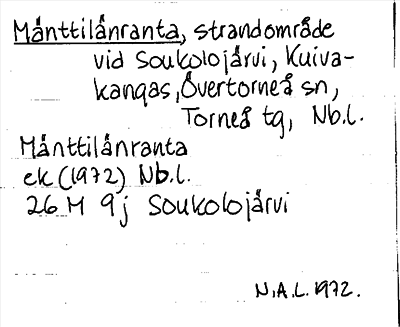 Månttilånranta, strandområde
vid Soukolojårvi, Kuiva-
kangas, Övertorneå sn,
Torneå tg, Nb.l.
Månttilånranta
ek (1972) Nb.l.
26 M 9j Soukolojårvi
N.A.L. 1972.